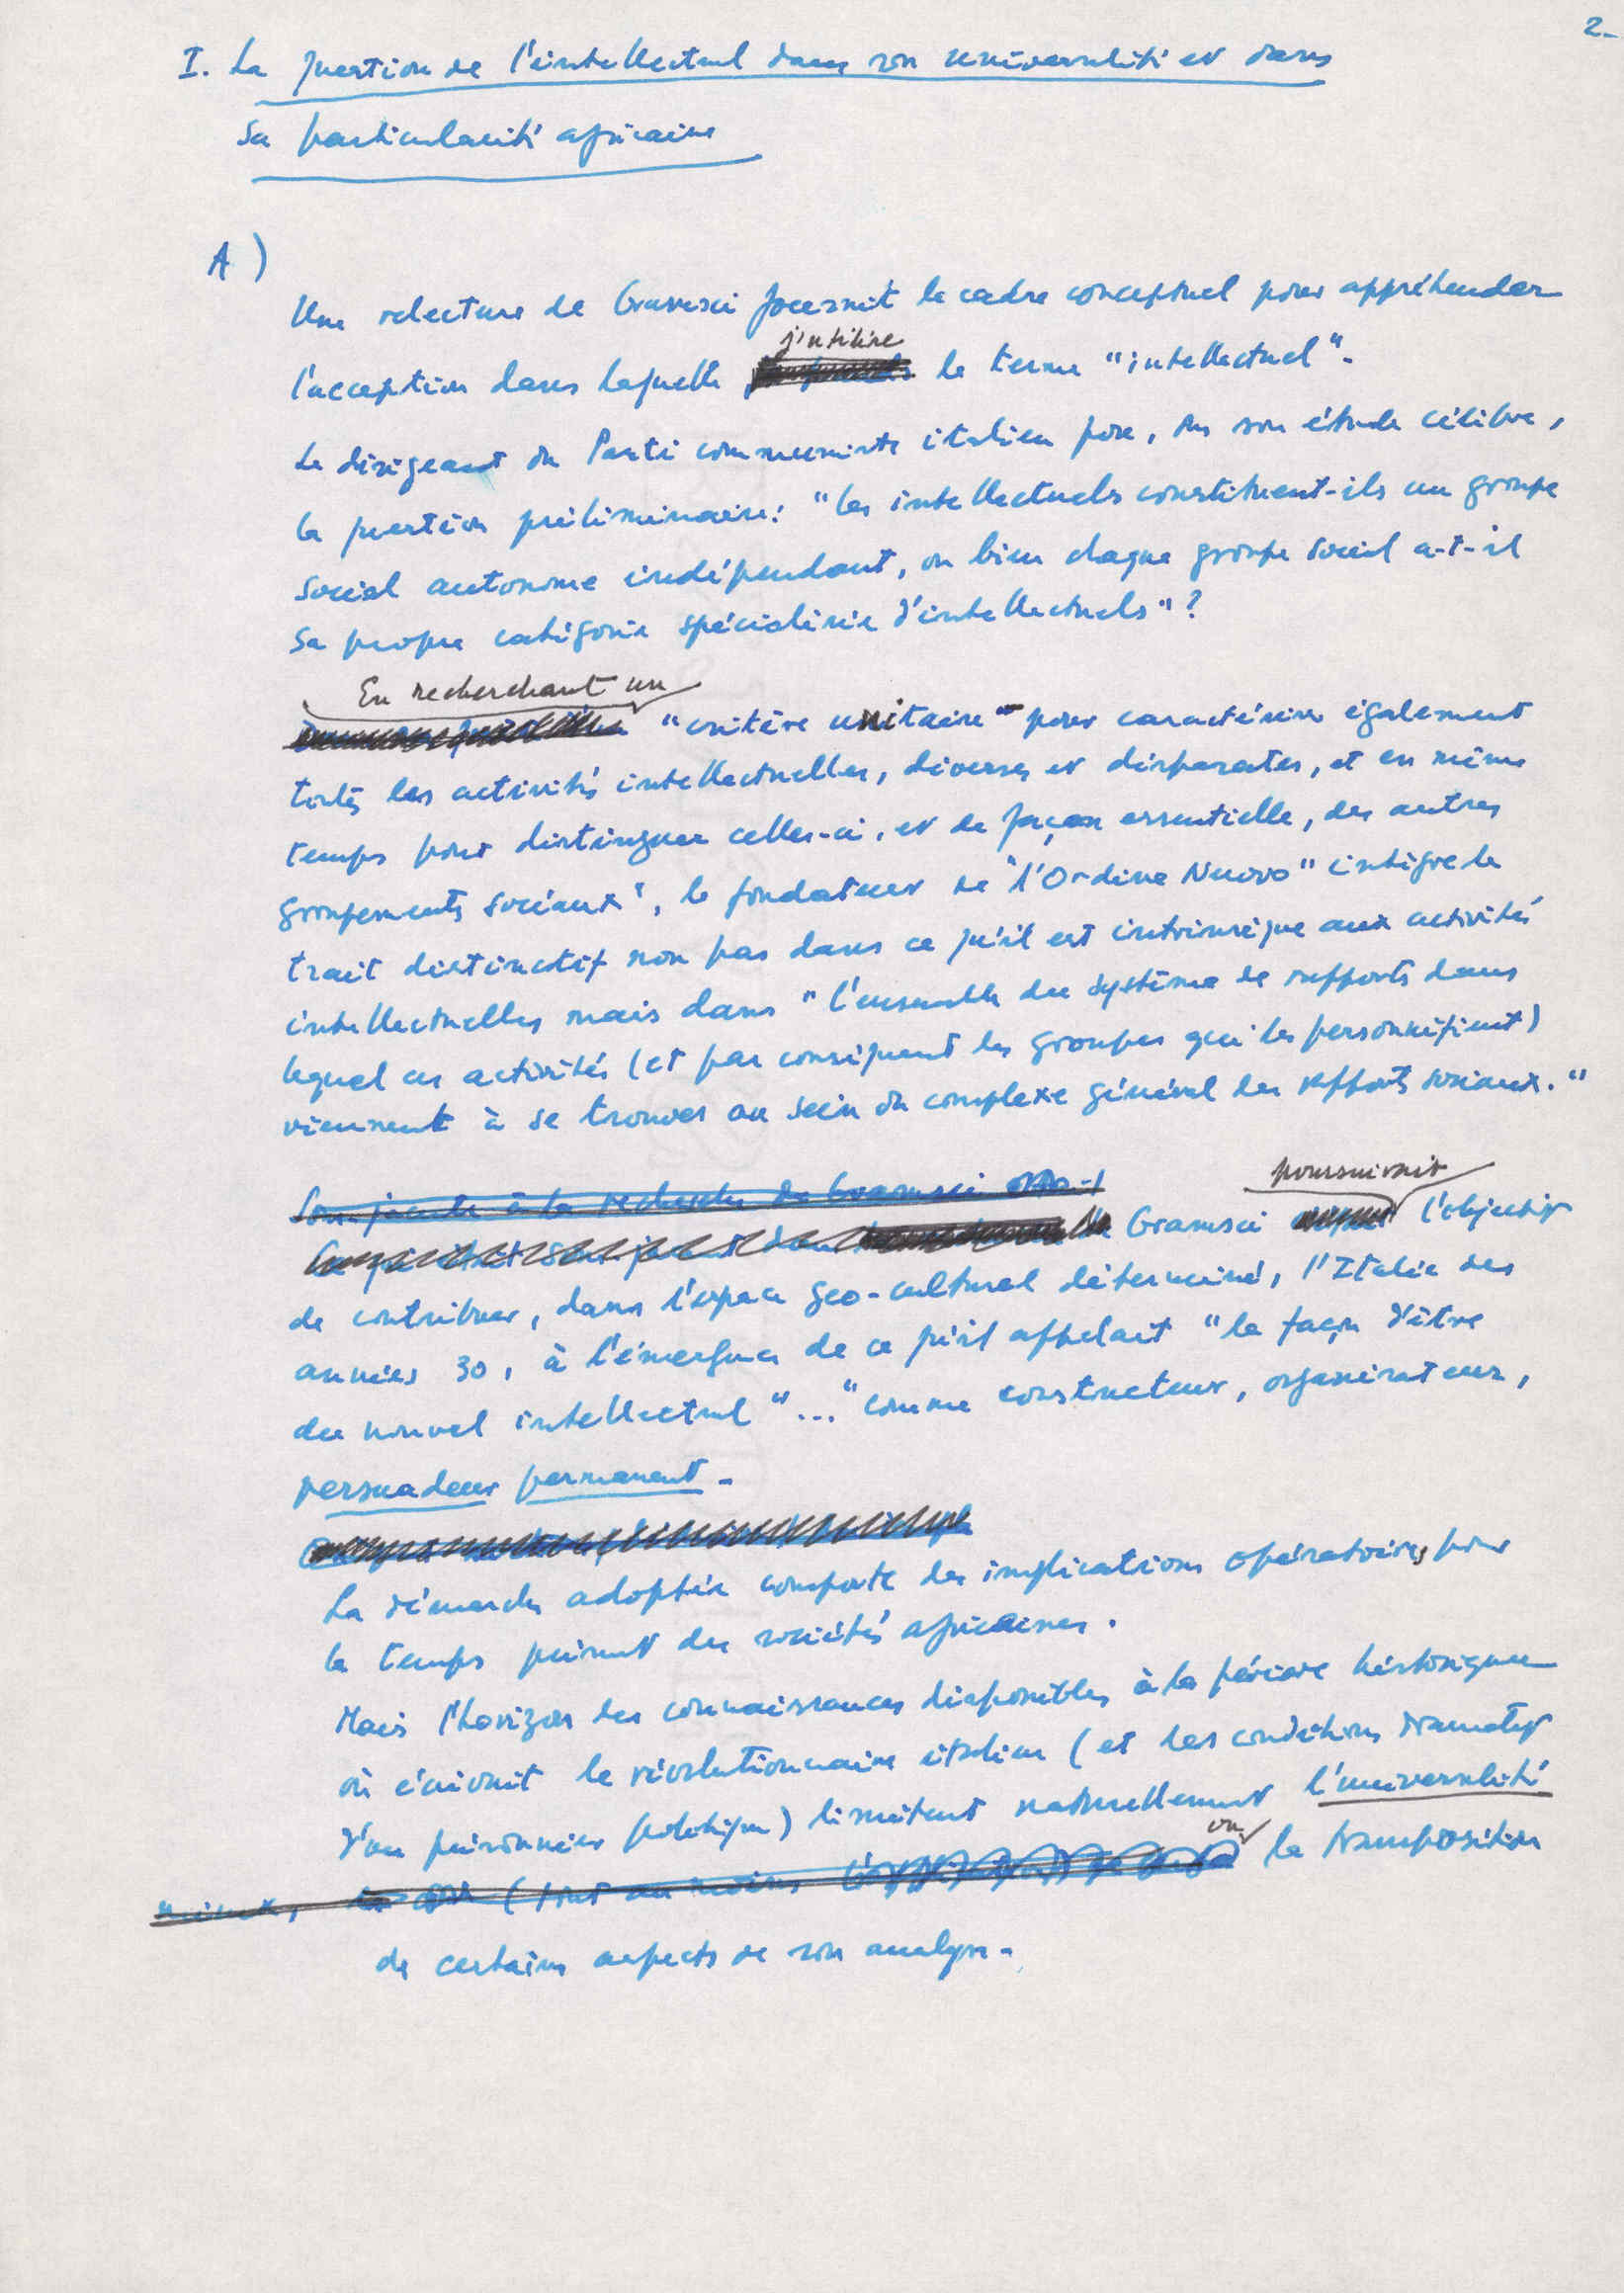 2.
I. La question de l'intellectuel dans son universalité et dans
sa particularité africaine
A)
Une relecture de Gramsci fournit le cadre conceptuel pour appréhender
j'utilise
l'acception dans laquelle le terme "intellectuel".
Le dirigeant du Parti communiste italien pose, ds son étude célèbre,
la question préliminaire: "les intellectuels constituent-ils un groupe
social autonome indépendant, ou bien chaque groupe social a-t-il
sa propre catégorie spécialisée d'intellectuels"?
En recherchant un
"critère unitaire pour caractériser également
toutes les activités intellectuelles, diverses et disparates, et en même
temps pour distinguer celles-ci, et de façon essentielle, des autres
groupements sociaux", le fondateur de "l'Ordine Nuovo" intègre le
trait distinctif non pas dans ce qu'il est intrinsèque aux activités
intellectuelles mais dans "l'ensemble du système de rapports dans
lequel ces activités (et par conséquent les groupes qui les personnifient)
viennent à se trouver au sein du complexe général des rapports sociaux."
Sous-jacente à la recherche de Gramsci
poursuivait
Gramsci l'objectif
de contribuer, dans l'espace géo-culturel déterminé, l'Italie des
années 30, à l'émergence de ce qu'il appelait "la façon d'être
du nouvel intellectuel"... "comme constructeur, organisateur,
persuadeur permanent.
La démarche adoptée comporte des implications opératoires, pour
le temps présent des sociétés africaines.
Mais l'horizon des connaissances disponibles à la période historique
où écrivait le révolutionnaire italien (et les conditions dramatiques
d'un prisonnier politique) limitent naturellement l'universalité
ou
(tout au moins la transposition
de certains aspects de son analyse.